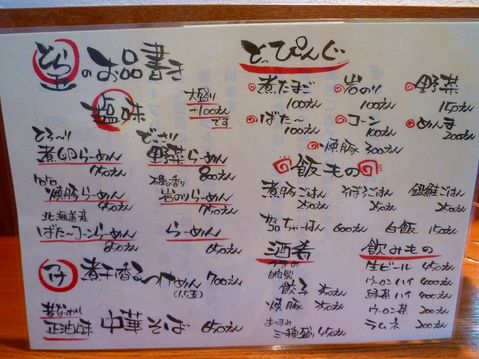 とら玉のお品書き
塩味
大盛り
+100えん
です
とろ〜り
煮卵らーめん
750えん
どっさり
野菜らーめん
800えん
焼豚らーめん
950えん
磯の香り
岩のりらーめん
750えん
北海道産
ばた〜コーンらーめん
850えん
らーめん
650えん
煮干香るつけめん 700えん
(1.5玉)
昔ながら
正油味 中華そば 650えん
とっぴんぐ
煮たまご
100えん
岩のり
100えん
野菜
150えん
ばた〜
100えん
コーン
100えん
めんま
200えん
焼豚 300えん
飯もの
煮豚ごはん
250えん
そぼろごはん
250えん
銀鮭ごはん
250えん
ちゃーはん 600えん
白飯 150えん
酒肴
自家製
餃子
焼豚
おつまみ
三種盛り 450えん
飲みもの
生ビール 450えん
ウーロンハイ 400えん
緑茶ハイ 400えん
ウーロン茶 200えん
ラムネ 200えん